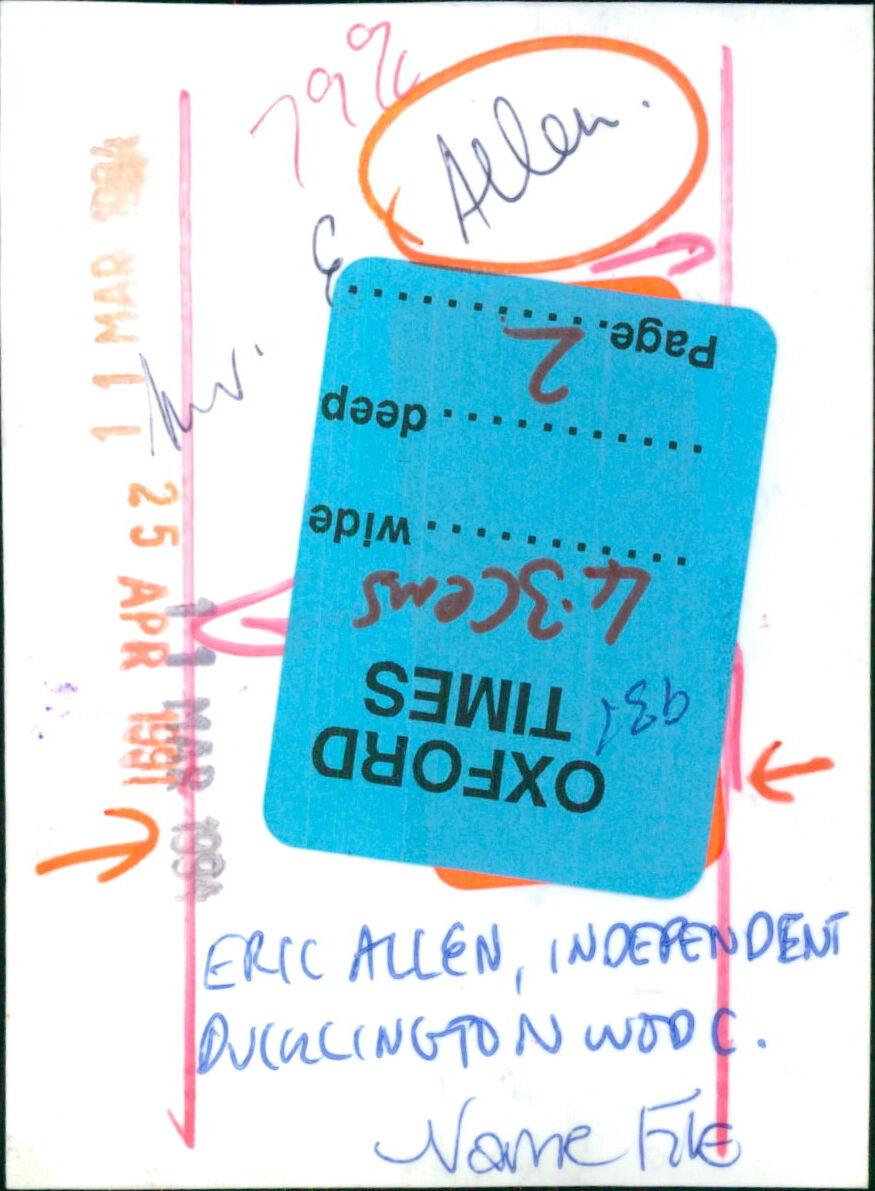 79%
Allen.
Mr. E
11 MAR 1994
25 APR 1991
11 MAR 1994
OXFORD
TIMES
4.3cms
wide ............
deep ............
Page.............
2
ERIC ALLEN, INDEPENDENT
DUCKLINGTON WODC.
Name File